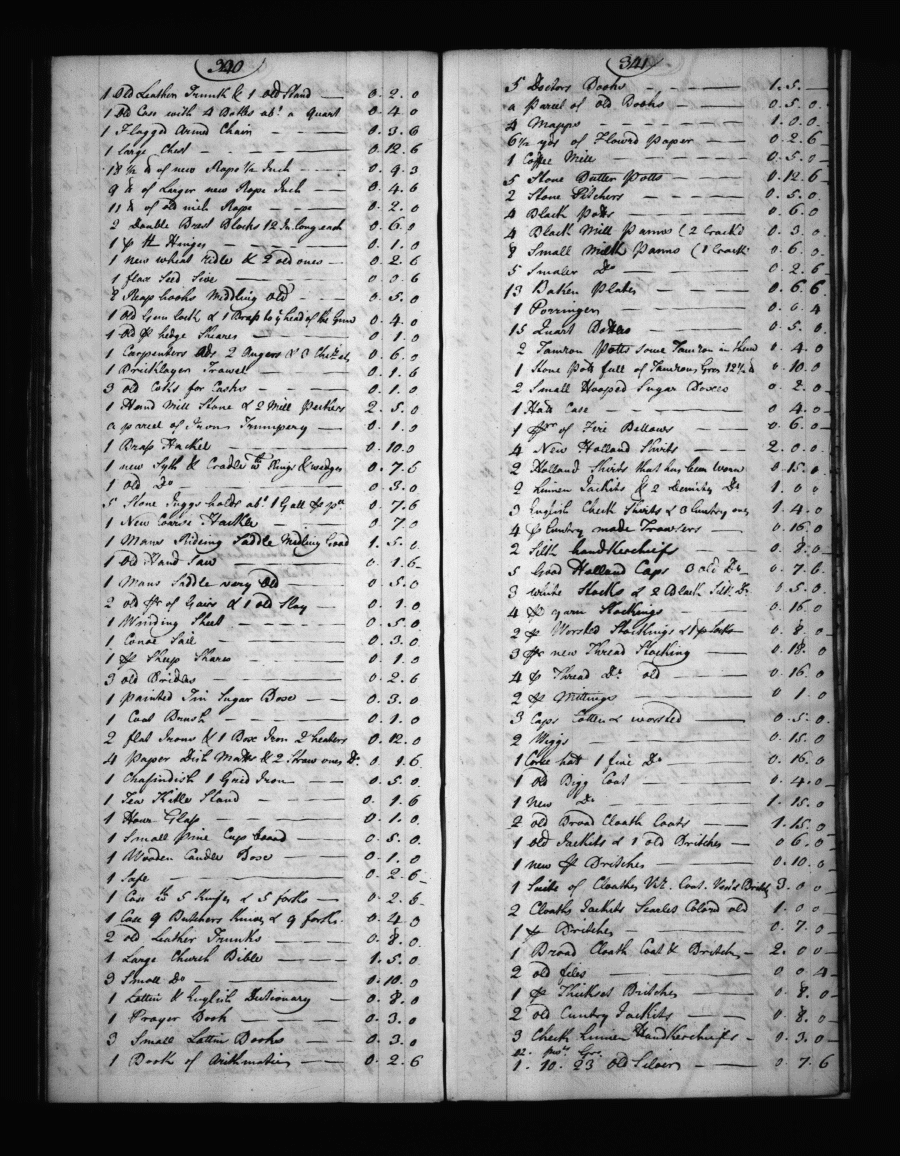 340
1 Old Leather Trunk & 1 Old Stand 0. 2. 0
1 Old Case with 4 Bottles abt. a Quart 0. 4. 0
1 Flagged Armed Chair 0. 3. 6
1 large Chest 0. 12. 6
18 1/2 lb of new Rope 1/2 Inch 0. 9. 3
9 lb of Larger new Rope Inch 0. 4. 6
11 lb of old inch Rope 0. 2. 0
2 Double Brest Blocks 12 In. long each 0. 6. 0
1 pr H Hinges 0. 1. 0
1 new wheat ridle & 2 old ones 0. 2. 6
1 flax Seed Sive 0. 0. 6
8 Reap hooks Midling Old 0. 5. 0
1 Old Gun lock & 1 Brass to ye head of the Gun 0. 4. 0
1 Old pr hedge Sheares 0. 1. 0
1 Carpenters Ads 2 Augers & 3 Chizels 0. 6. 0
1 Bricklayer Trawel 0. 1. 6
3 old Cocks for Casks 0. 1. 0
1 Hand Mill Stone & 2 Mill Peckers 2. 5. 0
a parcel of Iron Trumpery 0. 1. 0
1 Brass Hackel 0. 10. 0
1 new Syth & Cradle wth Rings & wedges 0. 7. 5
1 Old Do 0. 3. 0
5 Stone Juggs holds abt. 1 Gall pr ps 0. 7. 6
1 New Coarse Hackle 0. 7. 0
1 Mans Rideing Saddle Midling Good 1. 5. 0
1 Old Hand Saw 0. 1. 6
1 Mans Saddle very Old 0. 5. 0
2 old pr of Gairs & 1 old Slay 0. 1. 0
1 Winding Sheet 0. 5. 0
1 Canoe Sail 0. 3. 0
1 pr Sheep Shares 0. 1. 0
3 old Bridles 0. 2. 6
1 painted Tin Sugar Boxe 0. 3. 0
1 Coat Brush 0. 1. 0
2 flat Irons & 1 Box Iron 2 heaters 0. 12. 0
4 Paper Dish Matts & 2 Straw ones Do. 0. 1. 6
1 Chafindish 1 Gried Iron 0. 5. 0
1 Tea Kitle Stand 0. 1. 6
1 Hour Glass 0. 1. 0
1 Small Pine Cup board 0. 5. 0
1 Wooden Candle Boxe 0. 1. 0
1 Safe 0. 2. 6
1 Case wth 5 Knifes & 5 forks 0. 2. 6
1 Case 9 Butchers Knives & 9 forks 0. 4. 0
2 old Leather Trunks 0. 8. 0
1 Large Church Bible 1. 5. 0
3 Small Do 0. 10. 0
1 Lattin & English Dictionary 0. 8. 0
1 Prayer Book 0. 3. 0
3 Small Lattin Books 0. 3. 0
1 Book of Arithmatic 0. 2. 6
341
5 Doctors Books 1. 5.
a parcel of Old Books 0. 5. 0
4 Mapps 1. 0. 0
6 1/2 yds of Flowrd Paper 0. 2. 6
1 Coffee Mill 0. 5. 0
5 Stone Butter Potts 0. 12. 6
2 Stone Pitchers 0. 5. 0
4 Black Potts 0. 6. 0
4 Black Milk Panns (2 Crackd 0. 3. 0
8 Small Milk Panns (1 Crackd 0. 6. 0
5 Smaler Do 0. 2. 6
13 Baken Plates 0. 6. 6
1 Porringer 0. 0. 4
15 Quart Bottles 0. 5. 0
2 Tamron Potts some Tamron in them 0. 4. 0
1 Stone Pott full of Tamrons Gros 12 1/2 lb 0. 10. 0
2 Small Hooped Sugar Boxes 0. 2. 0
1 Hatt Case 0. 4. 0
1 pr of Fire Bellows 0. 6. 0
4 New Holland Shirts 2. 0. 0
2 Holland Shirts that has been worn 0. 15. 0
2 Linnen Jackits & 2 Demitey Do 1. 0. 0
3 English Check Shirts & 3 Cuntry ones 1. 4. 0
4 pr Cuntry made Trowsers 0. 16. 0
2 Silk handkerchiefs 0. 8. 0
5 Good Holland Caps 3 old Do 0. 7. 6
3 white Stocks & 2 Black Silk Do 0. 5. 0
4 pr yarn Stockings 0. 16. 0
2 pr Worsted Stockings & 1 pr Socks 0. 8. 0
3 pr new Thread Stocking 0. 18. 0
4 pr Thread Do old 0. 16. 0
2 pr Mittings 0. 1. 0
3 Caps Cotten & worsted 0. 5. 0
2 Wiggs 0. 15. 0
1 Corse hatt 1 fine Do 0. 16. 0
1 Old Bigg Coat 0. 4. 0
1 New Do 1. 15. 0
2 old Broad Cloath Coats 1. 15. 0
1 Old Jackits & 1 old Britches 0. 6. 0
1 new pr Britches 0. 10. 0
1 Suite of Cloathes Viz. Coat. Vest & Britchs 3. 0. 0
2 Cloaths Jackets Scarles Colord old 1. 0. 0
1 pr Britches 0. 7. 0
1 Broad Cloath Coat & Britches 2. 0. 0
2 old files 0. 0. 4
1 pr Thicksct Britches 0. 8. 0
2 old Cuntry Jackits 0. 8. 0
3 Check Linnen Handkerchiefs 0. 3. 0
oz. pwt. Grs.
1. 10. 23 Old Silver 0. 7. 6